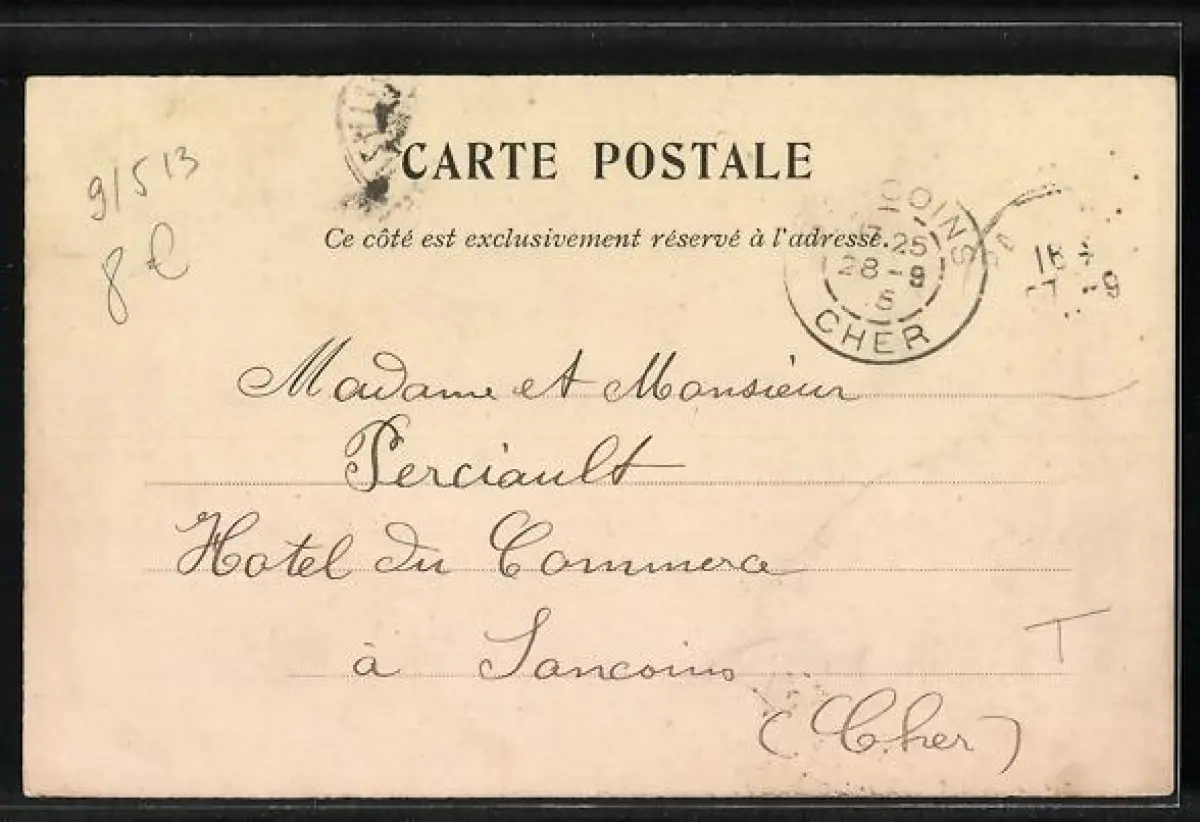 91513
8€
CARTE POSTALE
Ce côté est exclusivement réservé à l'adresse.
COINS
25
28-9
CHER
Madame et Monsieur
Perciault
Hotel du Commerce
à Sancoins
(Cher)
T